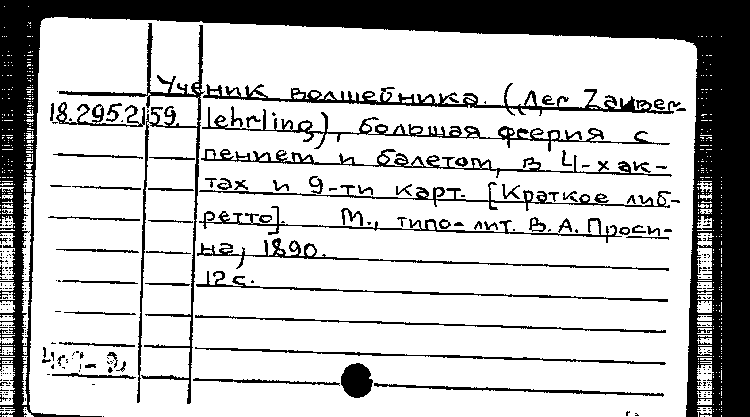 Ученик волшебника. („Der Zauber-
18.295.2159. lehrling), большая феерия с
пением и балетом, в 4-х ак-
тах и 9-ти карт. [Краткое либ-
ретто]. М., типо-лит. В.А. Проси-
на, 1890.
12 с.